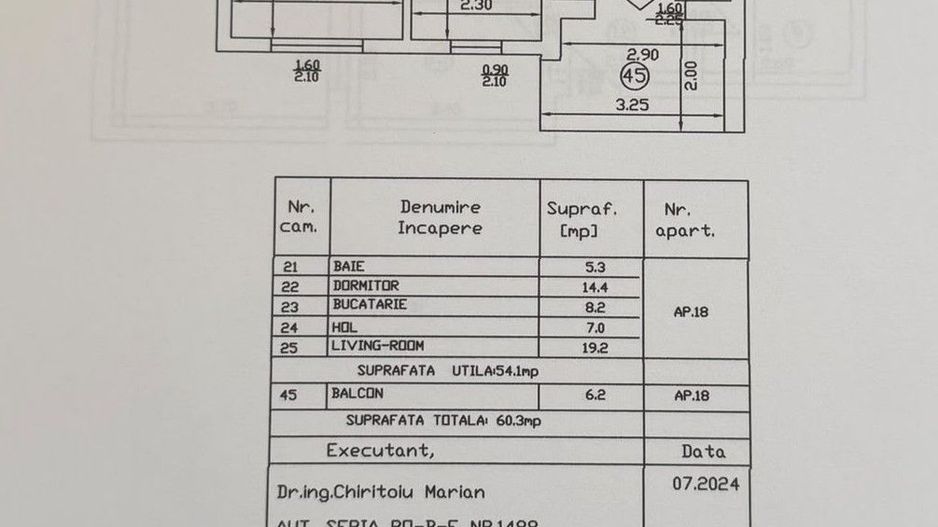 2.30
1.60
2.25
1.60
2.10
0.90
2.10
2.90
45
2.00
3.25
Nr. cam. Denumire Incapere Supraf. [mp] Nr. apart.
21 BAIE 5.3
22 DORMITOR 14.4
23 BUCATARIE 8.2
24 HOL 7.0
25 LIVING-ROOM 19.2
AP.18
SUPRAFATA UTILA:54.1mp
45 BALCON 6.2 AP.18
SUPRAFATA TOTALA: 60.3mp
Executant, Data
Dr.ing.Chiritoiu Marian 07.2024
AUT. SERIA RO-B-F NR.1488